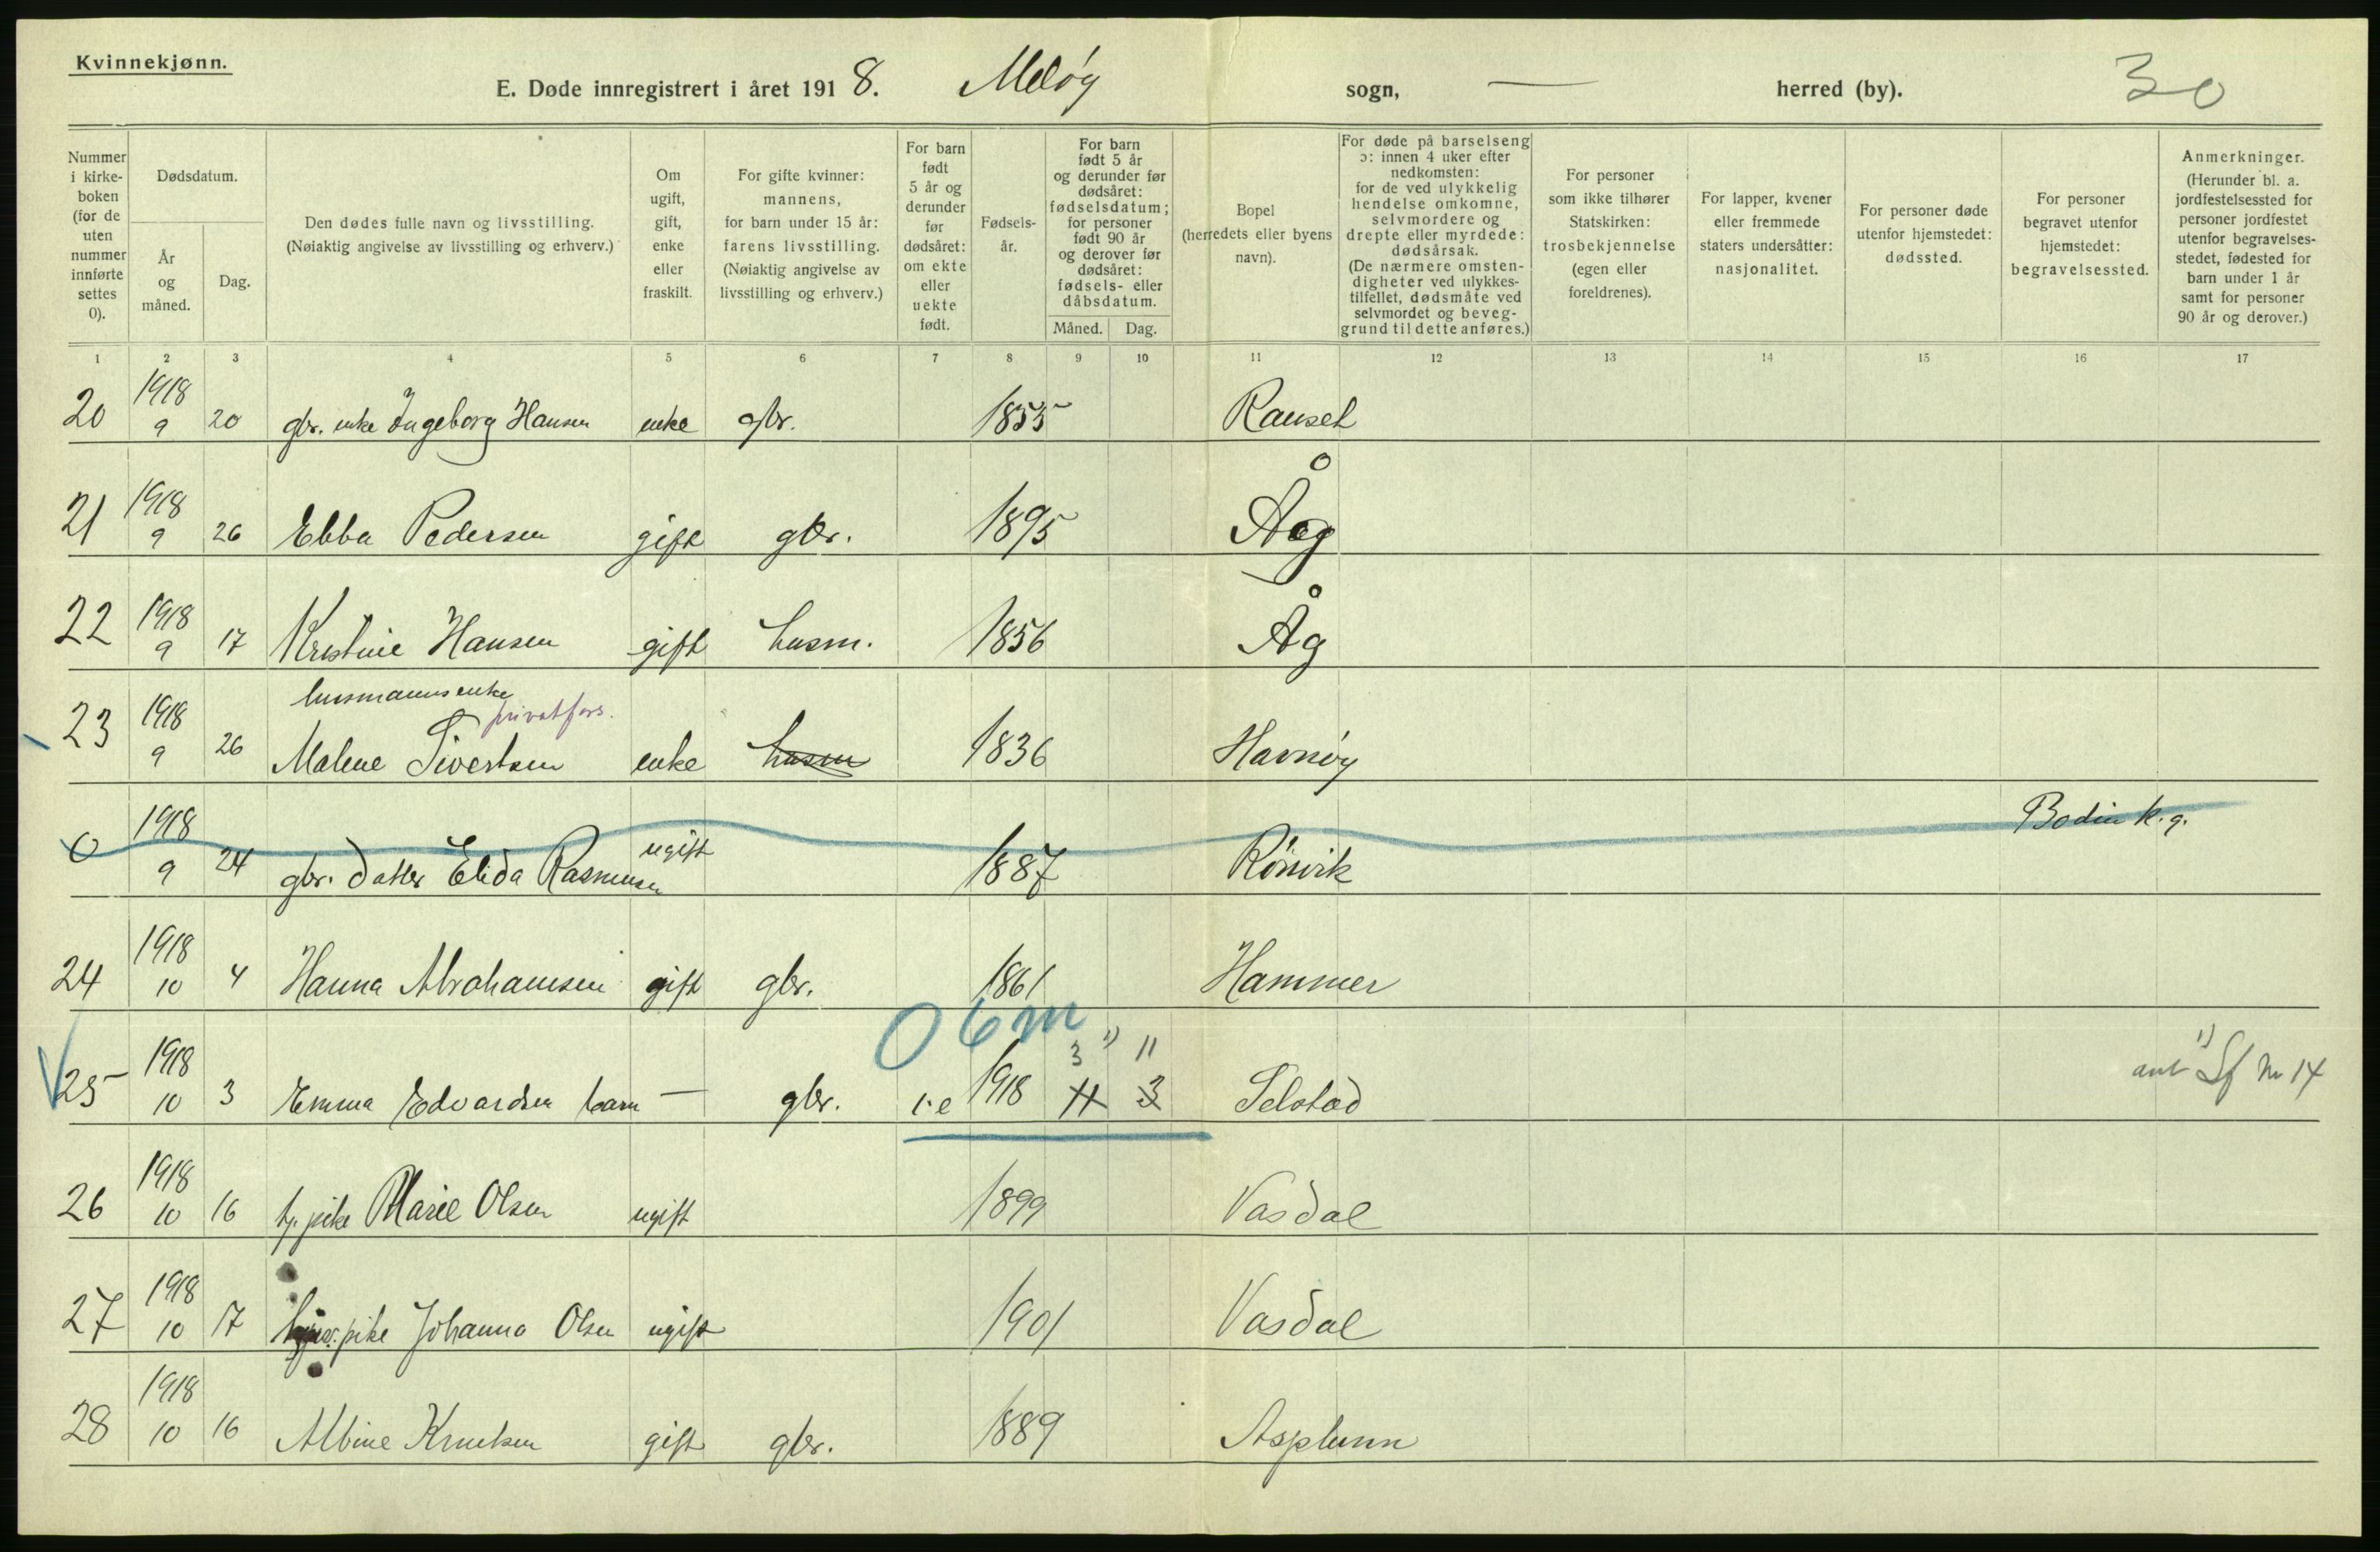 Kvinnekjønn.
E. Døde innregistrert i året 1918. Meløy sogn, — herred (by). 30
Nummer i kirkeboken (for de uten nummer innførte settes 0).
Dødsdatum.
År og måned.
Dag.
Den dødes fulle navn og livsstilling.
(Nøiaktig angivelse av livsstilling og erhverv.)
Om ugift, gift, enke eller fraskilt.
For gifte kvinner: mannens, for barn under 15 år: farens livsstilling.
(Nøiaktig angivelse av livsstilling og erhverv.)
For barn født 5 år og derunder før dødsåret: om ekte eller uekte født.
Fødselsår.
For barn født 5 år og derunder før dødsåret: fødselsdatum; for personer født 90 år og derover før dødsåret: fødsels- eller dåbsdatum.
Måned. Dag.
Bopel (herredets eller byens navn).
For døde på barselseng ɔ: innen 4 uker efter nedkomsten: for de ved ulykkelig hendelse omkomne, selvmordere og drepte eller myrdede: dødsårsak.
(De nærmere omstendigheter ved ulykkestilfellet, dødsmåte ved selvmordet og beveggrund til dette anføres.)
For personer som ikke tilhører Statskirken: trosbekjennelse (egen eller foreldrenes).
For lapper, kvener eller fremmede staters undersåtter: nasjonalitet.
For personer døde utenfor hjemstedet: dødssted.
For personer begravet utenfor hjemstedet: begravelsessted.
Anmerkninger.
(Herunder bl. a. jordfestelsessted for personer jordfestet utenfor begravelsesstedet, fødested for barn under 1 år samt for personer 90 år og derover.)
1 2 3 4 5 6 7 8 9 10 11 12 13 14 15 16 17
20 1918 9 20 gbr. enke Ingeborg Hansen enke gbr. 1855 Rauset
21 1918 9 26 Ebba Pedersen gift gbr. 1895 Åg
22 1918 9 17 Kristine Hansen gift husm. 1856 Åg
husmannsenke privatfors.
23 1918 9 26 Malene Sivertsen enke husm 1836 Havnøy
0 1918 9 24 gbr. datter Elida Rasmussen ugift 1887 Rønvik Bodin k.g.
24 1918 10 4 Hanna Abrahamsen gift gbr. 1861 Hammer
0 6 m
3 1) 11
25 1918 10 3 Emma Edvardsen barn — gbr. e 1918 11 3 Selstad ant 1) Lf Nr 14
26 1918 10 16 tj. pike Marie Olsen ugift 1899 Vasdal
27 1918 10 17 pike Johanna Olsen ugift 1901 Vasdal
28 1918 10 16 Albine Knutsen gift gbr. 1889 Asplunn